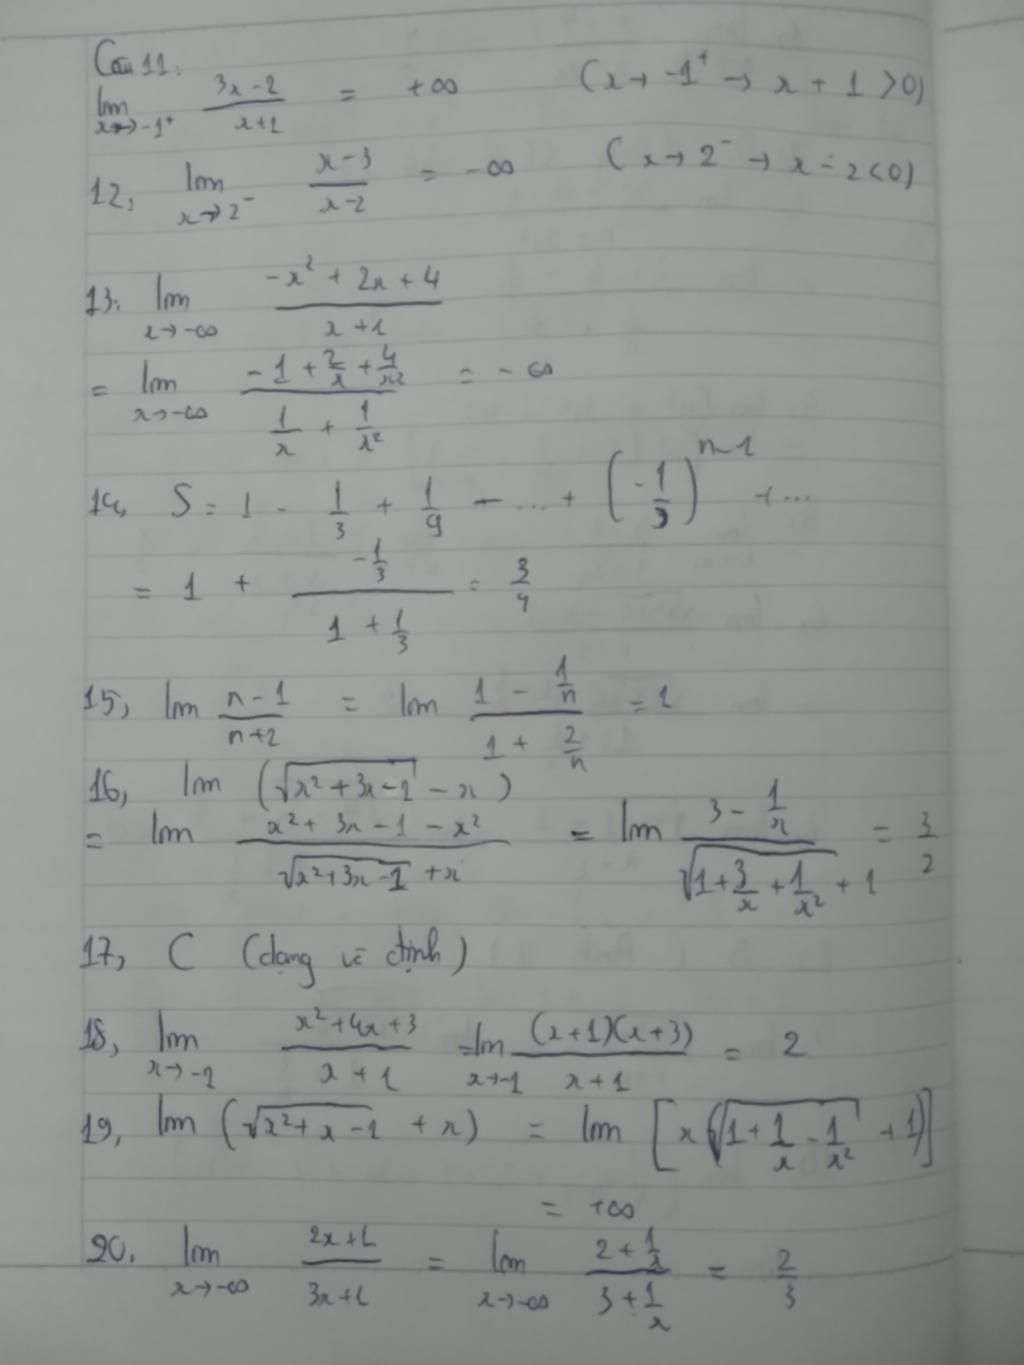 Câu 11.
lim x→-1⁺ (3x-2)/(x+1) = +∞ (x→-1⁺ → x+1>0)
12, lim x→2⁻ (x-3)/(x-2) = -∞ (x→2⁻ → x-2<0)
13. lim x→-∞ (-x²+2x+4)/(x+1)
= lim x→-∞ (-1+2/x+4/x²)/(1/x+1/x²) = -∞
14, S = 1 - 1/3 + 1/9 - ... + (-1/3)ⁿ⁻¹ + ...
= 1 + (-1/3)/(1+1/3) = 3/4
15, lim (n-1)/(n+2) = lim (1-1/n)/(1+2/n) = 1
16, lim (√(x²+3x-1) - x)
= lim (x²+3x-1-x²)/(√(x²+3x-1)+x) = lim (3-1/x)/(√(1+3/x+1/x²)+1) = 3/2
17, C (dạng vô định)
18, lim x→-1 (x²+4x+3)/(x+1) = lim x→-1 (x+1)(x+3)/(x+1) = 2
19, lim (√(x²+x-1) + x) = lim [x(√(1+1/x-1/x²)+1)]
= +∞
20. lim x→-∞ (2x+1)/(3x+1) = lim x→-∞ (2+1/x)/(3+1/x) = 2/3